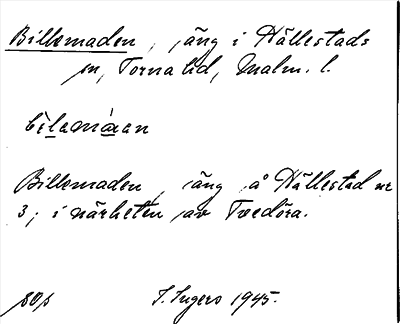 Billomaden, äng i Hällestads
sn, Torna hd, Malm. l.
Billomaden, äng å Hällestad nr
3; i närheten av Tvedöra.
sops
I. Ingers 1945.